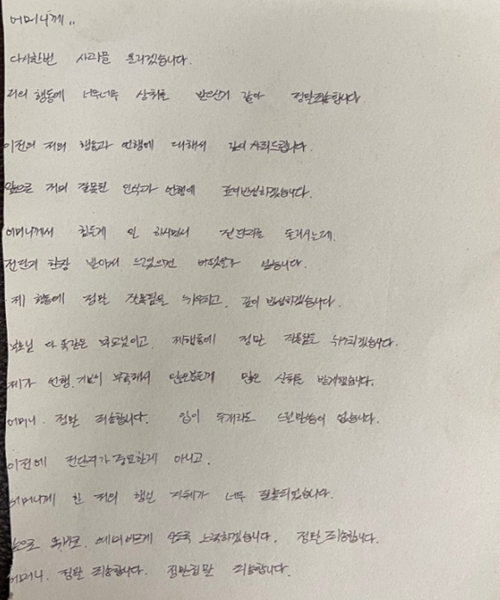 어머니께..
다시한번 사과를 드리겠습니다.
저의 행동에 너무너무 상처를 받으신거 같아 정말죄송합니다
이전의 저의 행동과 언행에 대해서 깊이 사죄드립니다.
앞으로 저의 잘못된 인식과 언행에 반성하겠습니다.
어머니께서 힘들게 일 하시면서 전단지를 돌리시는데.
전단지 한장 받아서 드렸으면 됐을걸 싶습니다.
제 행동에 정말 잘못됨을 뉘우치고, 깊이 반성하겠습니다.
부모님 다 똑같은 부모님이고, 제행동에 정말 잘못됨을 뉘우치겠습니다.
제가 언행, 부족해서 많은분들께 많은 상처를
어머니. 정말 죄송합니다. 입이 두개라도 드릴말씀이 없습니다.
이전에 전단지가 중요한게 아니고.
어머니께 한 저의 행실 자체가 너무 잘못되었습니다.
앞으로 예의바르게 살도록 노력하겠습니다. 정말 죄송합니다.
어머니. 정말 죄송합니다. 정말정말 죄송합니다.